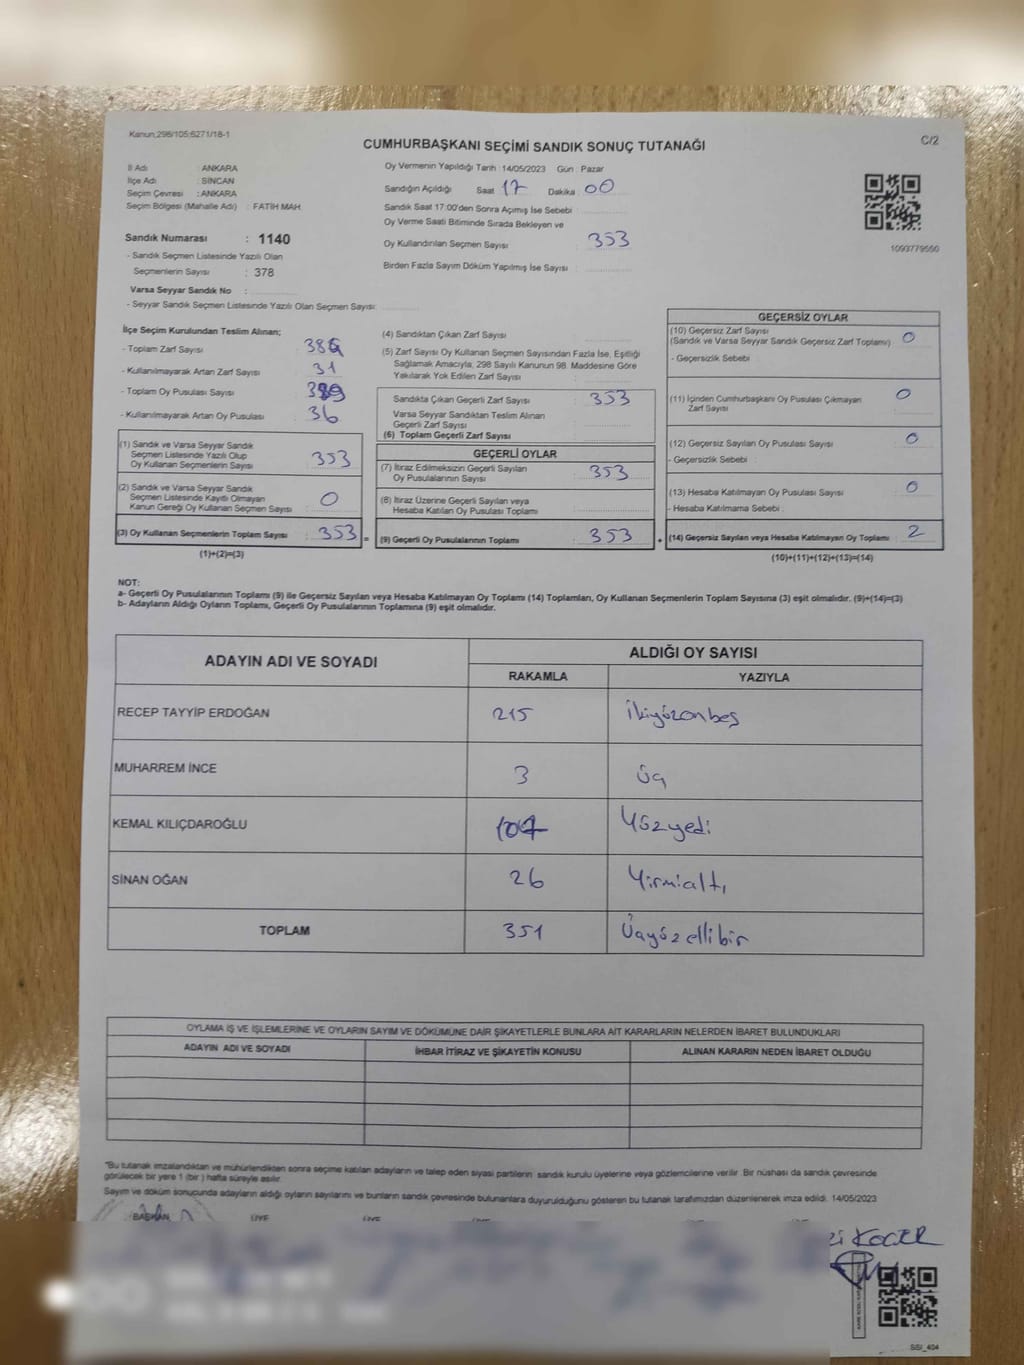 Kanun;298/105;6271/18-1
CUMHURBAŞKANI SEÇİMİ SANDIK SONUÇ TUTANAĞI
C/2
İl Adı : ANKARA
İlçe Adı : SİNCAN
Seçim Çevresi : ANKARA
Seçim Bölgesi (Mahalle Adı) : FATİH MAH.
Oy Vermenin Yapıldığı Tarih : 14/05/2023 Gün : Pazar
Sandığın Açıldığı Saat 17 Dakika : 00
Sandık Saat 17:00'den Sonra Açımış İse Sebebi :
Oy Verme Saati Bitiminde Sırada Bekleyen ve
Oy Kullandırılan Seçmen Sayısı : 353
Birden Fazla Sayım Döküm Yapılmış İse Sayısı :
1093779550
Sandık Numarası : 1140
- Sandık Seçmen Listesinde Yazılı Olan
Seçmenlerin Sayısı : 378
Varsa Seyyar Sandık No :
- Seyyar Sandık Seçmen Listesinde Yazılı Olan Seçmen Sayısı:
İlçe Seçim Kurulundan Teslim Alınan;
- Toplam Zarf Sayısı :
- Kullanılmayarak Artan Zarf Sayısı : 31
- Toplam Oy Pusulası Sayısı :
- Kullanılmayarak Artan Oy Pusulası : 36
(1) Sandık ve Varsa Seyyar Sandık
Seçmen Listesinde Yazılı Olup
Oy Kullanan Seçmenlerin Sayısı : 353
(2) Sandık ve Varsa Seyyar Sandık
Seçmen Listesinde Kayıtlı Olmayan
Kanun Gereği Oy Kullanan Seçmen Sayısı : 0
(3) Oy Kullanan Seçmenlerin Toplam Sayısı : 353 =
(1)+(2)=(3)
(4) Sandıktan Çıkan Zarf Sayısı :
(5) Zarf Sayısı Oy Kullanan Seçmen Sayısından Fazla İse, Eşitliği
Sağlamak Amacıyla; 298 Sayılı Kanunun 98. Maddesine Göre
Yakılarak Yok Edilen Zarf Sayısı :
Sandıkta Çıkan Geçerli Zarf Sayısı : 353
Varsa Seyyar Sandıktan Teslim Alınan
Geçerli Zarf Sayısı :
(6) Toplam Geçerli Zarf Sayısı :
GEÇERLİ OYLAR
(7) İtiraz Edilmeksizin Geçerli Sayılan
Oy Pusulalarının Sayısı : 353
(8) İtiraz Üzerine Geçerli Sayılan veya
Hesaba Katılan Oy Pusulası Toplamı :
(9) Geçerli Oy Pusulalarının Toplamı : 353 +
GEÇERSİZ OYLAR
(10) Geçersiz Zarf Sayısı : 0
(Sandık ve Varsa Seyyar Sandık Geçersiz Zarf Toplamı)
- Geçersizlik Sebebi :
(11) İçinden Cumhurbaşkanı Oy Pusulası Çıkmayan
Zarf Sayısı : 0
(12) Geçersiz Sayılan Oy Pusulası Sayısı : 0
- Geçersizlik Sebebi :
(13) Hesaba Katılmayan Oy Pusulası Sayısı : 0
- Hesaba Katılmama Sebebi :
(14) Geçersiz Sayılan veya Hesaba Katılmayan Oy Toplamı : 2
(10)+(11)+(12)+(13)=(14)
NOT:
a- Geçerli Oy Pusulalarının Toplamı (9) ile Geçersiz Sayılan veya Hesaba Katılmayan Oy Toplamı (14) Toplamları, Oy Kullanan Seçmenlerin Toplam Sayısına (3) eşit olmalıdır. (9)+(14)=(3)
b- Adayların Aldığı Oyların Toplamı, Geçerli Oy Pusulalarının Toplamına (9) eşit olmalıdır.
ADAYIN ADI VE SOYADI
ALDIĞI OY SAYISI
RAKAMLA YAZIYLA
RECEP TAYYİP ERDOĞAN 215 İkiyüzonbeş
MUHARREM İNCE 3 Üç
KEMAL KILIÇDAROĞLU 107 Yüzyedi
SİNAN OĞAN 26 Yirmialtı
TOPLAM 351 Üçyüzellibir
OYLAMA İŞ VE İŞLEMLERİNE VE OYLARIN SAYIM VE DÖKÜMÜNE DAİR ŞİKAYETLERLE BUNLARA AİT KARARLARIN NELERDEN İBARET BULUNDUKLARI
ADAYIN ADI VE SOYADI İHBAR İTİRAZ VE ŞİKAYETİN KONUSU ALINAN KARARIN NEDEN İBARET OLDUĞU
"Bu tutanak imzalandıktan ve mühürlendikten sonra seçime katılan adayların ve talep eden siyasi partilerin sandık kurulu üyelerine veya gözlemcilerine verilir. Bir nüshası da sandık çevresinde
görülecek bir yere 1 (bir ) hafta süreyle asılır.
Sayım ve döküm sonucunda adayların aldığı oyların sayılarını ve bunların sandık çevresinde bulunanlara duyurulduğunu gösteren bu tutanak tarafımızdan düzenlenerek imza edildi. 14/05/2023
BAŞKAN ÜYE ÜYE
KOÇER
SSI_404